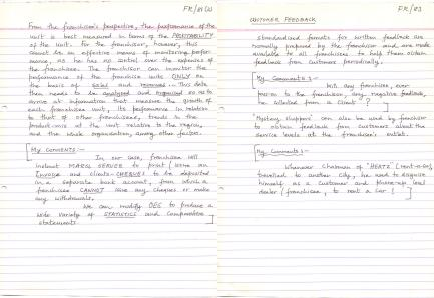 FR/81(1)
From the franchisee's perspective, the performance of the
unit is best measured in terms of the PROFITABILITY
of the unit. For the franchisor, however, this
cannot be an effective means of monitoring perfor-
mance, as he has no control over the expenses of
the franchisee. The franchisor can monitor the
performance of the franchise units ONLY on
the basis of sales and revenues. This data
then needs to be analysed and organised so as to
arrive at information that measure the growth of
each franchisee unit, its performance in relation
to that of other franchisees, trends in the
product-mix at the unit relative to the region,
and the whole organisation, among other factors.
My COMMENTS:-
In our case, franchisee will
instruct SERVER to print / write an
Invoice and clients CHEQUES to be deposited
in a separate bank account, from which a
franchisee CANNOT issue any cheques or make
any withdrawals.
We can modify to produce a
wide variety of STATISTICS and comparative
statements.
FR/83
CUSTOMER FEEDBACK
Standardised formats for written feedback are
normally prepared by the franchisor and are made
available to all franchisees to help them obtain
feedback from customers periodically.
My Comments :-
Will any franchisee, ever
pass-on to the franchisor, any negative feedback,
he collected from a client?
"Mystery shoppers" can also be used by franchisor
to obtain feedback from customers about the
service levels at the franchisee's outlet.
My Comments :-
Whenever Chairman of "HERTZ" (rent-a-car)
travelled to another city, he used to disguise
himself as a customer and phone-up local
dealer / franchisee, to rent a car!